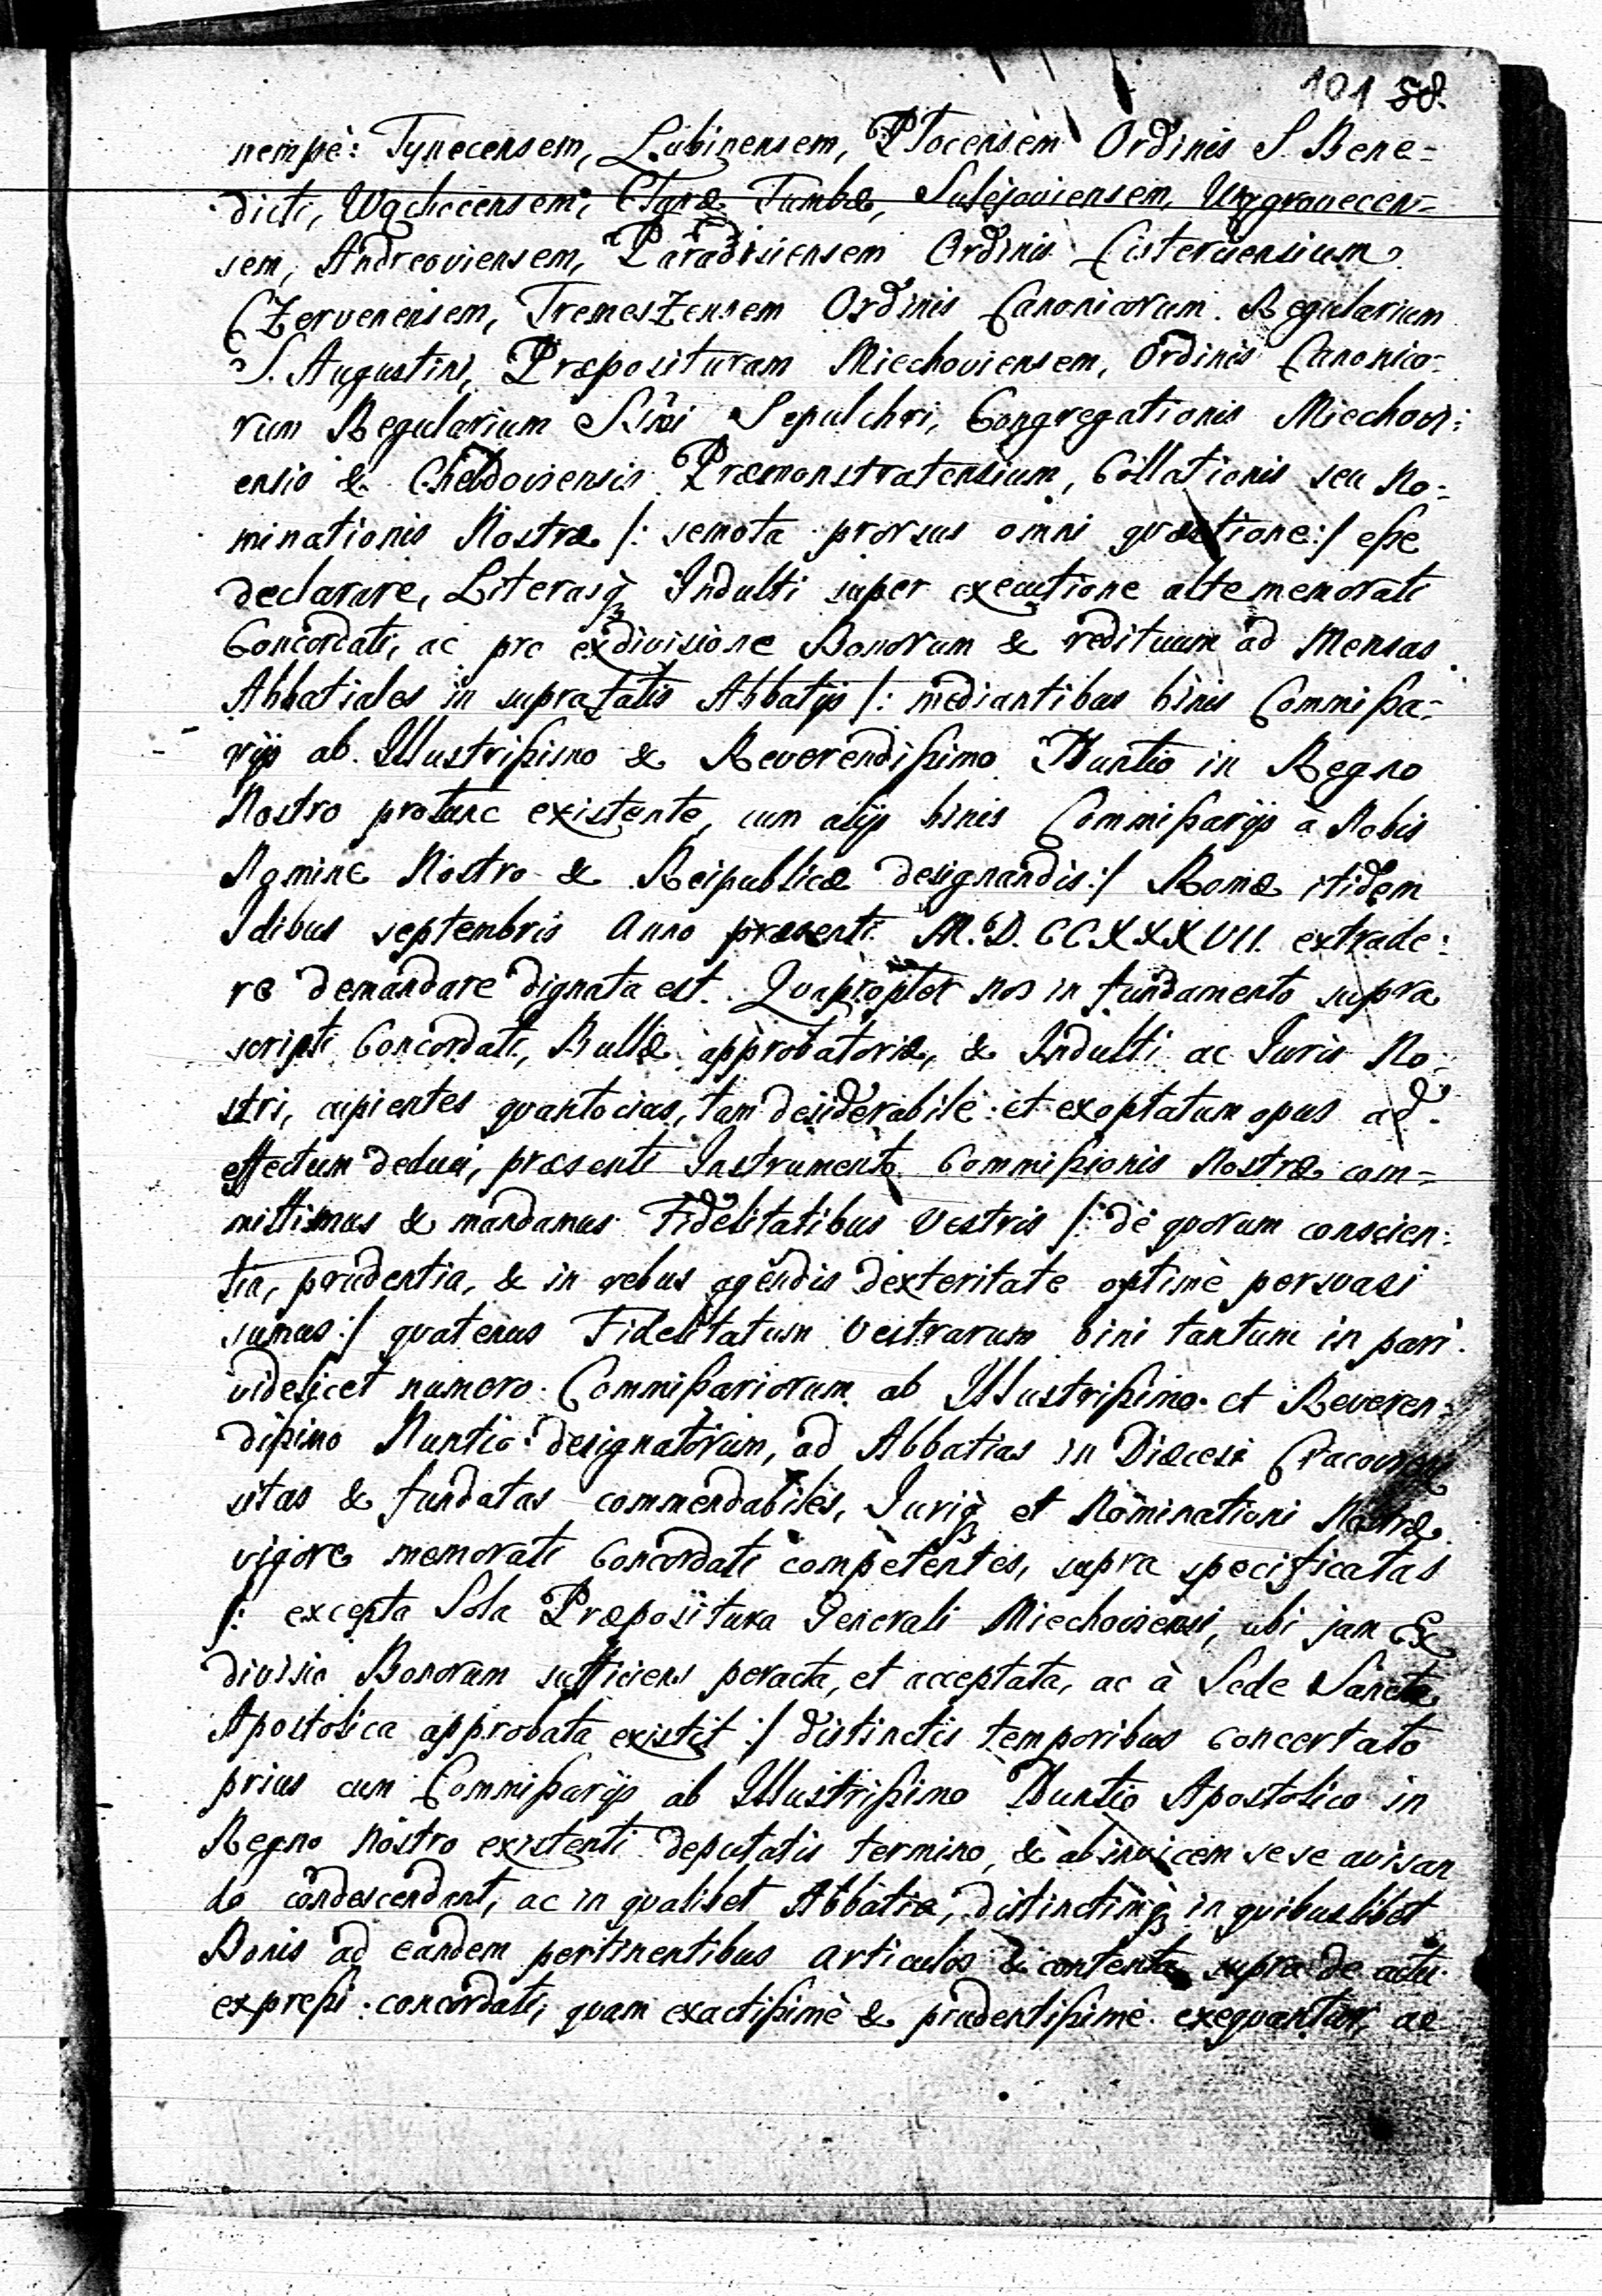 101 58.
nempè: Tynecensem, Lubinensem, Plocensem Ordinis S. Bene=
dicti, Wąchocensem, Claræ Tumbæ, Sulejoviensem, Wągrovecen=
sem, Andreoviensem, Paradisiensem Ordinis Cisterciensium
Czervenensem, Tremeszensem Ordinis Canonicorum Regularium
S. Augustini, Præposituram Miechoviensem, Ordinis Canonico=
rum Regularium Smi Sepulchri, Congregationis Miechovi:
ensis & Hebdoviensis Præmonstratensium, Collationis seu No:
minationis Nostræ /: semota prorsus omni quæstione :/ eße
declarare, Literasq; Indulti super executione alte memorati
Concordati, ac pro exdivisione Bonorum & redituum ad Mensas
Abbatiales in supra Abbatijs /: mediantibus binis Commißa=
rijs ab Illustrißimo & Reverendißimo Nuntio in Regno
Nostro protunc existente, cum alijs binis Commißarijs à Nobis
Nomine Nostro & Reipublicæ designandis :/ Romæ itidem
Idibus septembris Anno præsenti M.D.CCXXXVII. extrade:
re demandare dignata est. Quapropter nos in fundamento supra
scripti Concordati, Bullæ approbatoriæ, & Indulti ac Juris No:
stri, cupientes quantocius, tam desiderabile et exoptatum opus ad
effectum deduci, præsenti Instrumento Commißionis Nostræ com=
mittimus & mandamus Fidelitatibus Vestris /: de quorum conscien:
tia, prudentia, & in rebus agendis dexteritate optimè persuasi
sumus :/ quatenus Fidelitatum Vestrarum bini tantum in pari
videlicet numero Commißariorum ab Illustrißimo et Reveren=
dißimo Nuntio designatorum, ad Abbatias in Diæcesi Cracoviensi
sitas & fundatas commendabiles, Juriq; et Nominationi Nostræ
vigore memorati Concordati competentes, supra specificatas
/: excepta Sola Præpositura Generali Miechoviensi, ubi jam Ex
divisio Bonorum sufficiens peracta, et acceptata, ac à Sede Sancta
Apostolica approbata existit :/ distinctis temporibus concertato
prius cum Commißarijs ab Illustrißimo Nuntio Apostolico in
Regno Nostro existenti deputatis termino, & ab invicem sese avisan
do condescendant, ac in qualibet Abbatia, distinctimq; in quibuslibet
Bonis ad eandem pertinentibus articulos & contenta supra de actu
expreßi concordati, quam exactißimè & prudentißimè exequantur, ac